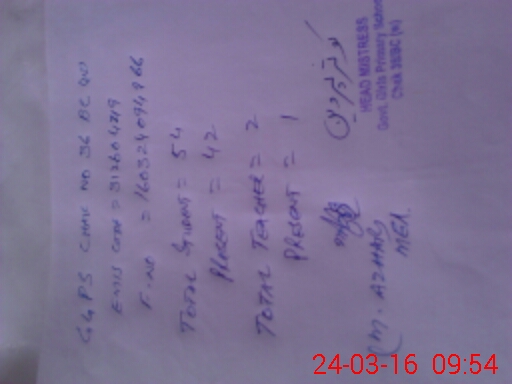 GGPS CHAK NO 36 BC
EMIS CODE = 312604719
F. NO = 16032404094966
TOTAL STUDENT = 54
PRESENT = 42
TOTAL TEACHER = 2
PRESENT = 1
HEAD MISTRESS
Govt. Girls Primary School
Chak 36/BC (B)
(M. AZHAR)
MEA.
24-03-16 09:54